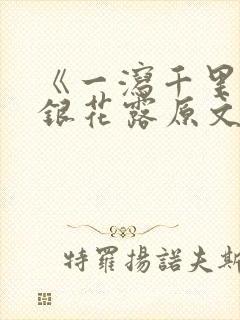 《一瀉千里
銀花露原文
特羅揚諾夫斯